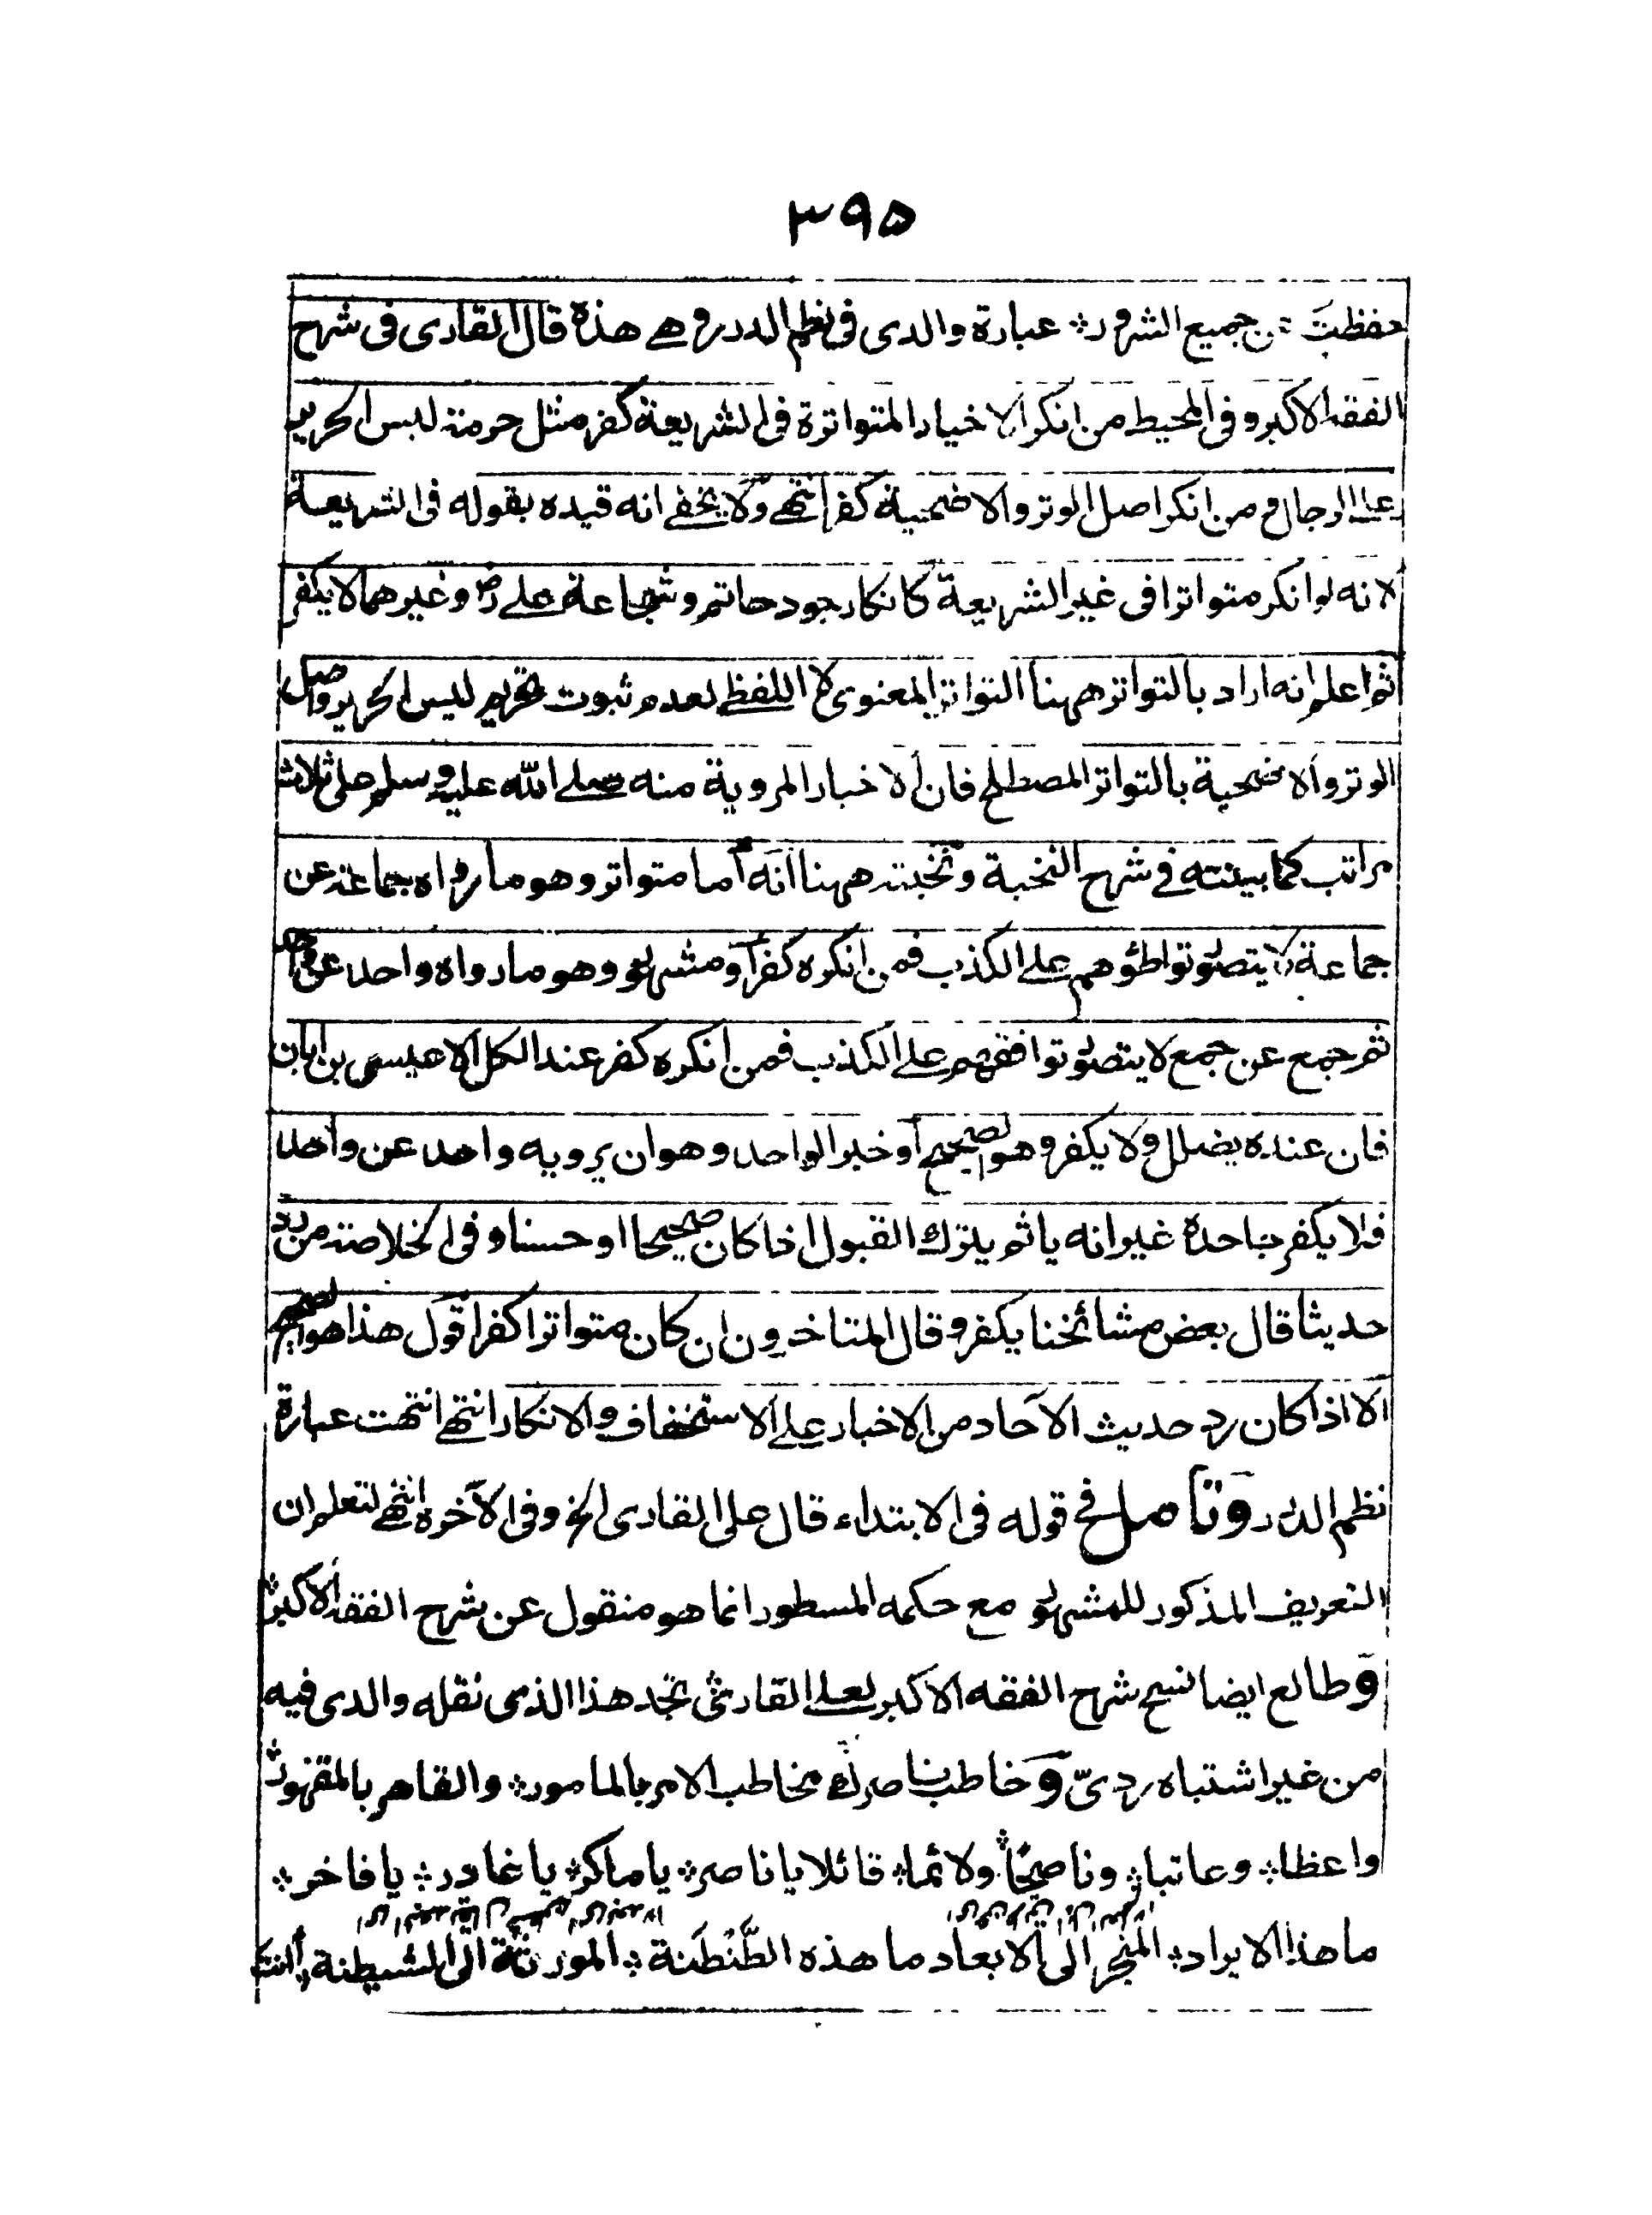 ٣٩٥
حفظت من جميع الشرور؞ عبارة والدى فى نظم الدرر وهے هذه قال القارى فى شرح
الفقه الاكبر وفى المحيط من انكر الاخبار المتواترة فى الشريعة كفر مثل حرمة لبس الحرير
على الرجال ومن انكر اصل الوتر والاضحية كفر انتهے ولا يخفے انه قيده بقوله فى الشريعة
لانه لو انكر متواترا فى غير الشريعة كانكار جود حاتم وشجاعة علے رض وغيرهما لا يكفر
ثم اعلم انه اراد بالتواتر ههنا التواتر المعنوى لا اللفظے لعدم ثبوت تحريم لبس الحرير واصل
الوتر والاضحية بالتواتر المصطلح فان الاخبار المروية منه صلے الله عليه وسلم على ثلاث
مراتب كما بينته فے شرح النخبة ونخبته ههنا انه اما متواتر وهو ما رواه جماعة عن
جماعة لا يتصور تواطؤهم علے الكذب فمن انكره كفر او مشهور وهو ما رواه واحد عن واحد
ثم جمع عن جمع لا يتصور توافقهم علے الكذب فمن انكره كفر عند الكل الا عيسى بن ابان
فان عنده يضلل ولا يكفر وهو الصحيح او خبر الواحد وهو ان يرويه واحد عن واحد
فلا يكفر جاحده غير انه ياثم بترك القبول اذا كان صحيحا او حسنا وفى الخلاصة من رد
حديثا قال بعض مشائخنا يكفر وقال المتاخرون ان كان متواترا كفر اقول هذا هو الصحيح
الا اذا كان رد حديث الآحاد من الاخبار علے الاستخفاف والانكار انتهے انتهت عبارة
نظم الدرر وتامل فے قوله فى الابتداء قال على القارى الخ وفى الآخره انتهے لتعلم ان
التعريف المذكور للمشهور مع حكمه المسطور انما هو منقول عن شرح الفقه الاكبر؞
وطالع ايضا نسخ شرح الفقه الاكبر لعلے القارى؞ تجد هذا الذى نقله والدى فيه
من غير اشتباه ردىّ وخاطب ناصرك مخاطب الامر بالمامور؞ والقاهر بالمقهور؞
واعظا؞ وعاتبا؞ وناصحًا؞ ولائما؞ قائلا يا ناصر؞ يا ماكر؞ يا غادر؞ يا فاخر؞
ما هذا الايراد؞ المنجر الى الابعاد ما هذه الطَّنْطَنة؞ المورثة الى الشيطنة؞